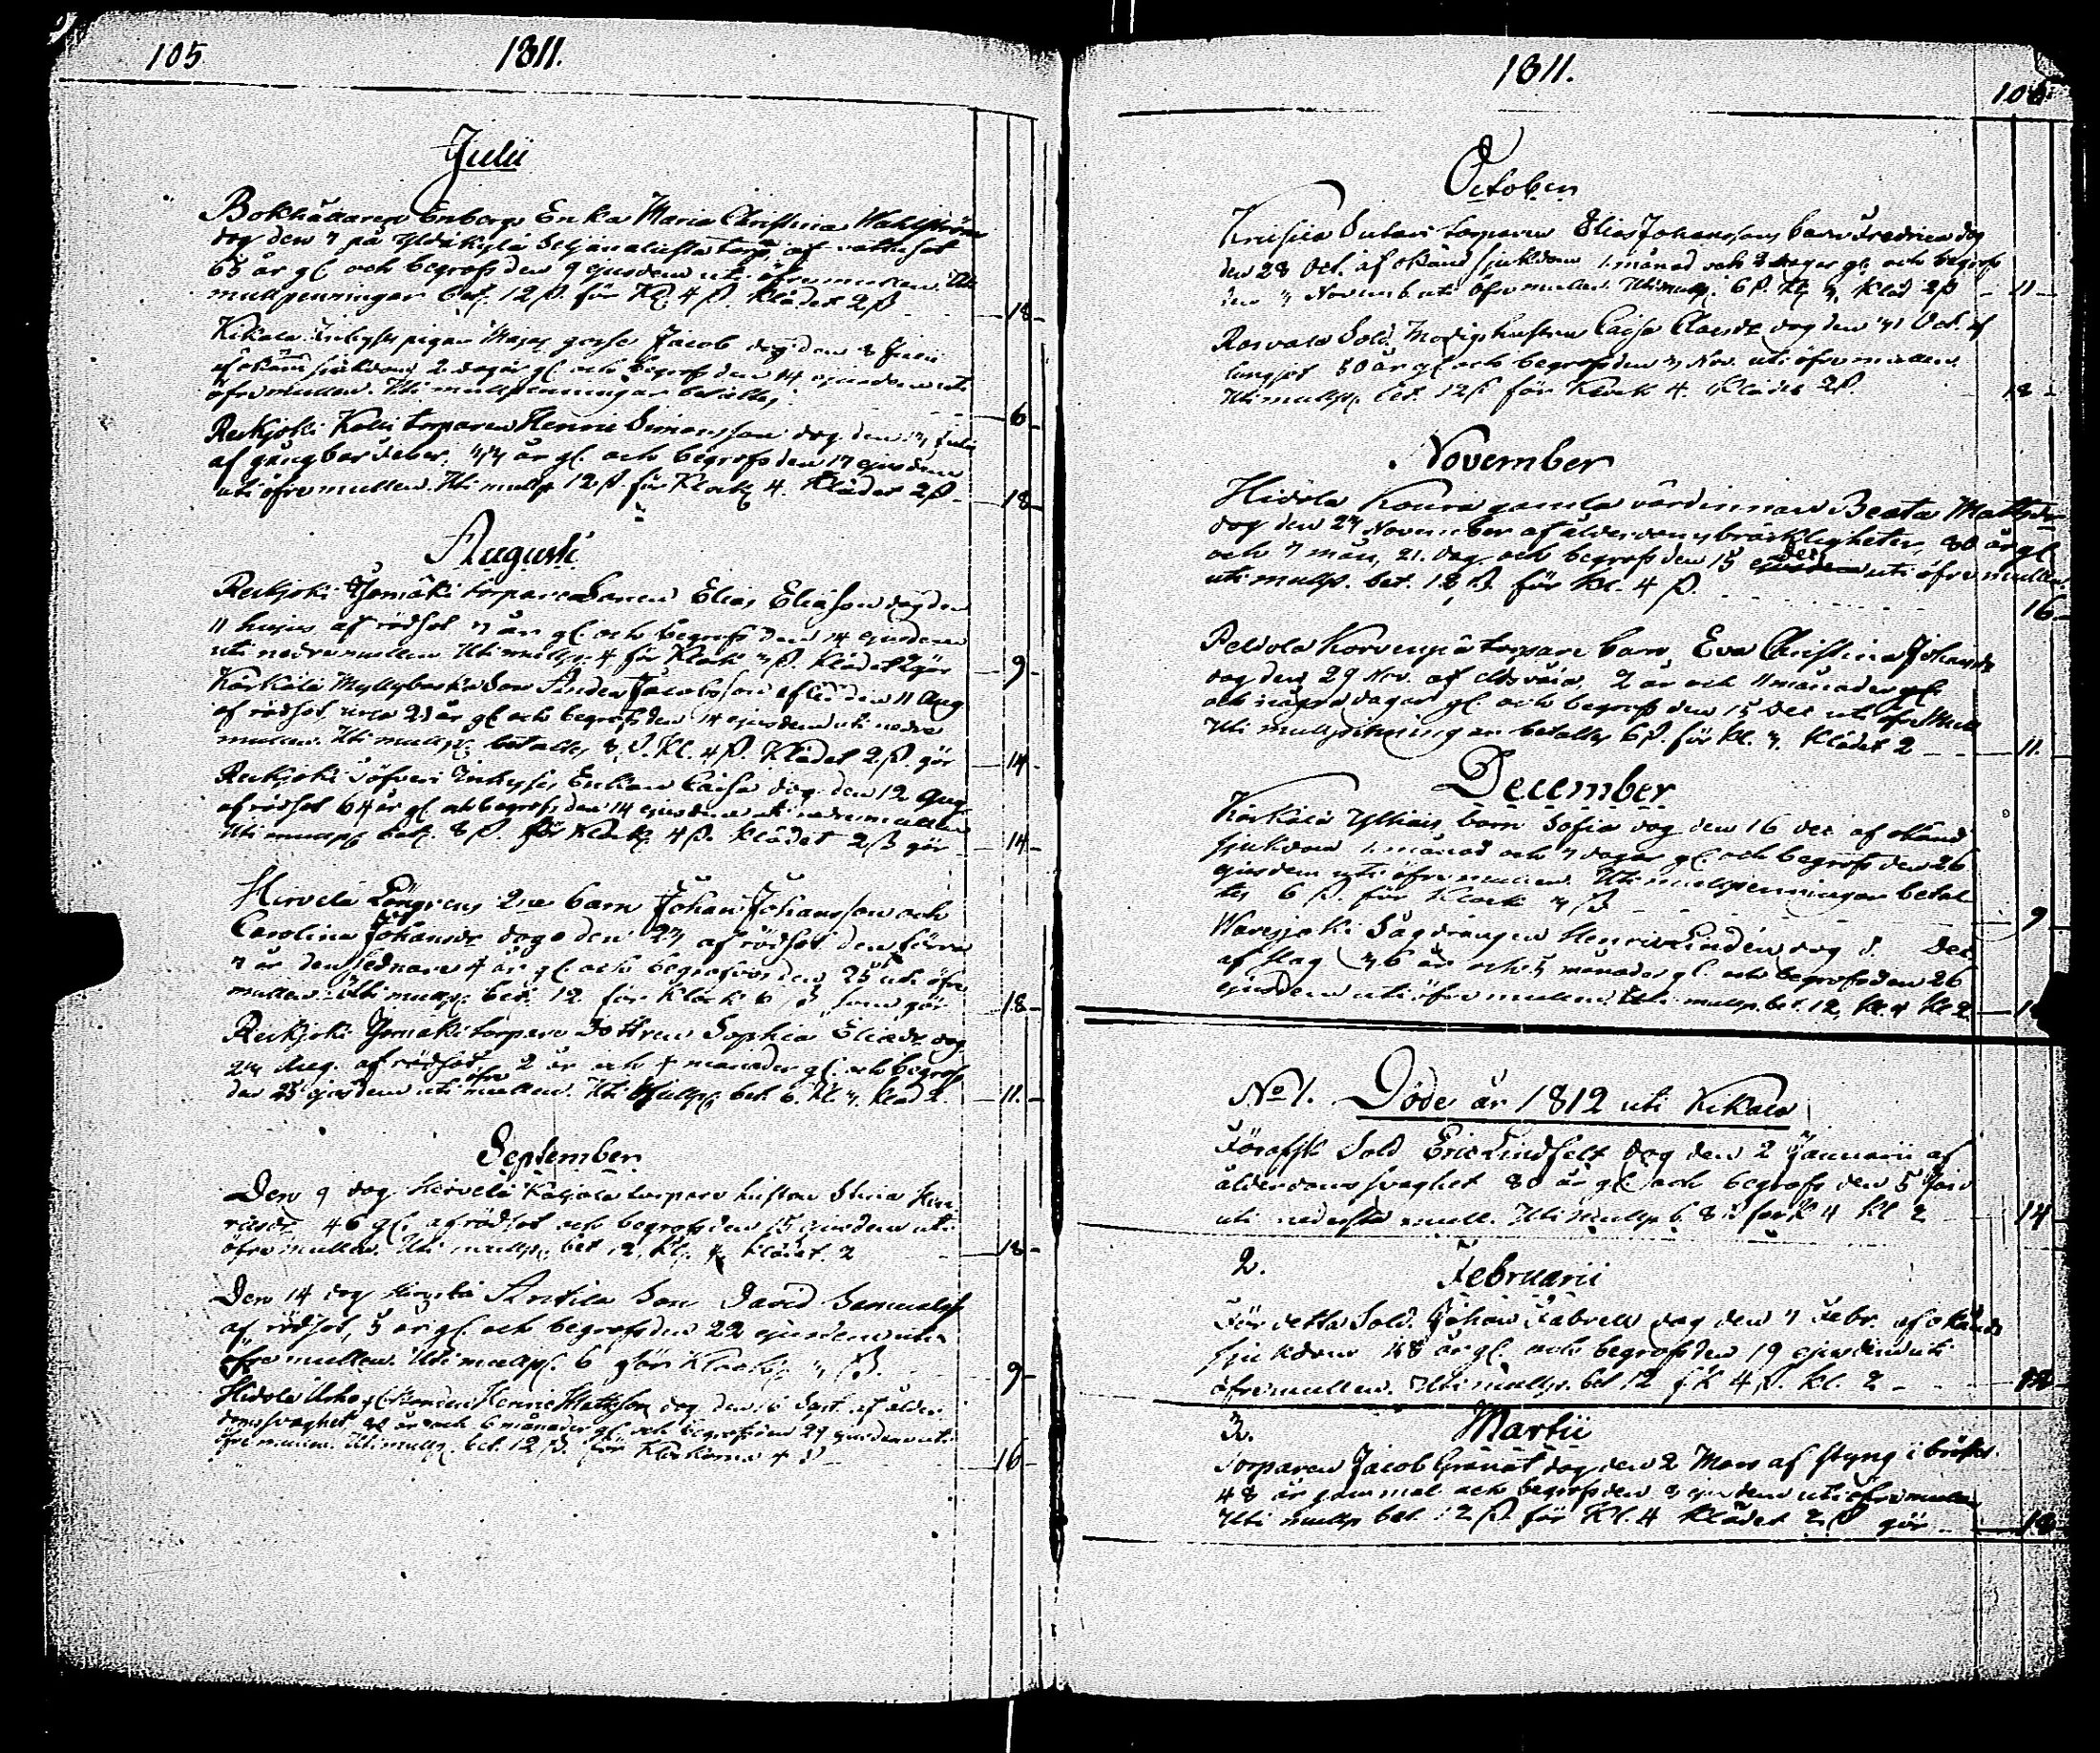 105
1811.
Julii
Bokhållaren Enbergs Enka Maria Christina Wahlström
dog den 7 på Yldäkylä torp, af vattusot
65 år gl. och begrofs den 9 ejusdem uti öfre mullen. Uti
mullpenningar bet. 12 ß. för Kl. 4 ß. Klädet 2 ß
18
Kikala Inhyses pigan Majas gosse Jacob dog den 8 Julii
af okänd sjukdom 2 dagar gl. och begrofs den 14 ejusdem uti
öfre mullen. Uti mullpenningar betaltes
6
Reikjoki Kalli torparen Henric Simonsson dog den 14 Julii
af gångbar feber, 77 år gl. och begrofs den 17 ejusdem
uti öfre mullen. Uti mullp 12 ß. för Klock 4. Klädet 2 ß
18
Augusti
Reikjoki torpare Sonen Elias Eliasson dog den
11 hujus af rödsot 7 år gl. och begrofs den 14 ejusdem
uti nedre mullen Uti mullp. 4 för Klock 3 ß. Klädet 2 gör
9
Kärkälä Myllybacka Son Anders Jacobsson afled den 11 Aug
af rödsot 23 år gl. och begrofs den 14 ejusdem uti nedre
mullen. Uti mullp. betaltes 8 ß. Kl. 4 ß. Klädet 2 ß. gör
14
Reikjoki Söfveri Inhyses Enkan Caisa dog den 12 Aug
af rödsot 64 år gl. och begrofs den 14 ejusdem uti nedre mullen
Uti mullp bet. 8 ß. för Klock. 4 ß. klädet 2 ß gör
14
Hirvelä Löngrens 2ne barn Johan Johansson och
Carolina Johansdr dogo den 23 af rödsot den förra
7 år den sednare 4 år gl. och begrofvos den 25 uti öfre
mullen. Uti mullp. bet. 12 för Klock 6 ß som gör
18
Reikjoki torpare Dottren Sophia Eliædr dog
24 Aug. af rödsot 2 år och 4 månader gl. och begrofs
den 25 ejusdem uti öfre mullen. Uti Mullp bet. 6. Kl. 3. Kläd 2.
11.
September
Den 9 dog Hirvelä Katjala torpare hustrun Stina Hen
ricsdr 46 gl. af rödsot och begrofs den 15 ejusdem uti
öfre mullen. Uti mullp. bet 12, Kl. 4 Klädet. 2
18
Den 14 dog Hirvelä Antila Son David Samuelss
af rödsot, 5 år gl. och begrofs den 22 ejusdem uti
öfre mullen. Uti mullp. 6 för Klock. 3 ß.
9
Hidola Henric Mattsson dog den 16 Sept. af ålder
domssvaghet år och 6 månader gl. och begrofs den 29 ejusdem uti
öfre mullen. Uti mullp. bet. 12 ß. för Klockorna 4 ß
16
1811.
106
October
Torparen Elias Johanssons barn Fredrica dog
den 28 Oct. af okänd sjukdom 1. månad och 3 dagar gl. och begrofs
den 3 Novemb uti öfre mullen. Uti mullp. 6 ß. Kl 3. Kläd 2 ß
11
Rasvala Sold. Modigs hustru Caisa Claesdr dog den 31 Oct. af
lungsot 50 år gl. och begrofs den 3 Nov. uti öfre mullen.
Uti mullp. bet. 12 ß för Klock 4. Klädet 2 ß.
18
November
Hidola Koura gamla värdinnan Beata Mattsdr
dog den 27 November af ålderdoms bräckligheter, 80 år gl.
och 7 mån, 21. dag. och begrofs den 15 dec uti öfre mullen.
uti mullp. bet. 12 ß. för Kl. 4 ß.
16
Peldola Korvenpä torpare barn Eva Christina Johansdr
dog den 29 Nov. af 2 år och 11 månader
och några dagar gl. och begrofs den 15 Dec uti öfre Mull
Uti mullpenningar betaltes 6 ß. för Kl. 3. Klädet 2
11.
December
Kärkälä barn Sofia dog den 16 dec af okänd
sjukdom 1. månad och 7 dagar gl. och begrofs den 26
ejusdem uti öfre mullen. Uti mullpenningar betal
tes 6 ß. för Klock 3 ß
9
Waresjoki Sågdrängen Henric Lindén dog d. Dec
af slag 36 år och 5 månader gl. och begrofs den 26
ejusdem uti öfre mullen. Uti mullp. bet. 12, Kl. 4 Kl. 2
No 1. Döde år 1812 uti Kikala
Förafsk Sold Eric Lindfelt dog den 2 Januarii af
ålderdoms svaghet 80 år gl. och begrofs den 5 Jan
uti nedersta mull. Uti mullp b. 8 ß för K 4 Kl 2
14
2.
Februarii
För detta Sold. Johan Fabrell dog den 7 Febr. af okänd
sjukdom år gl. och begrofs den 19 ejusdem uti
öfre mullen. Uti mullp. bet 12 f K 4 ß. Kl. 2
18
3.
Martii
Torparen Jacob Granat dog den 2 Mars af styng i bröstet
48 år gammal och begrofs den 8 ejusdem uti öfre mullen
Uti mullp bet. 12 ß. för Kl. 4 Klädet 2 ß gör
18